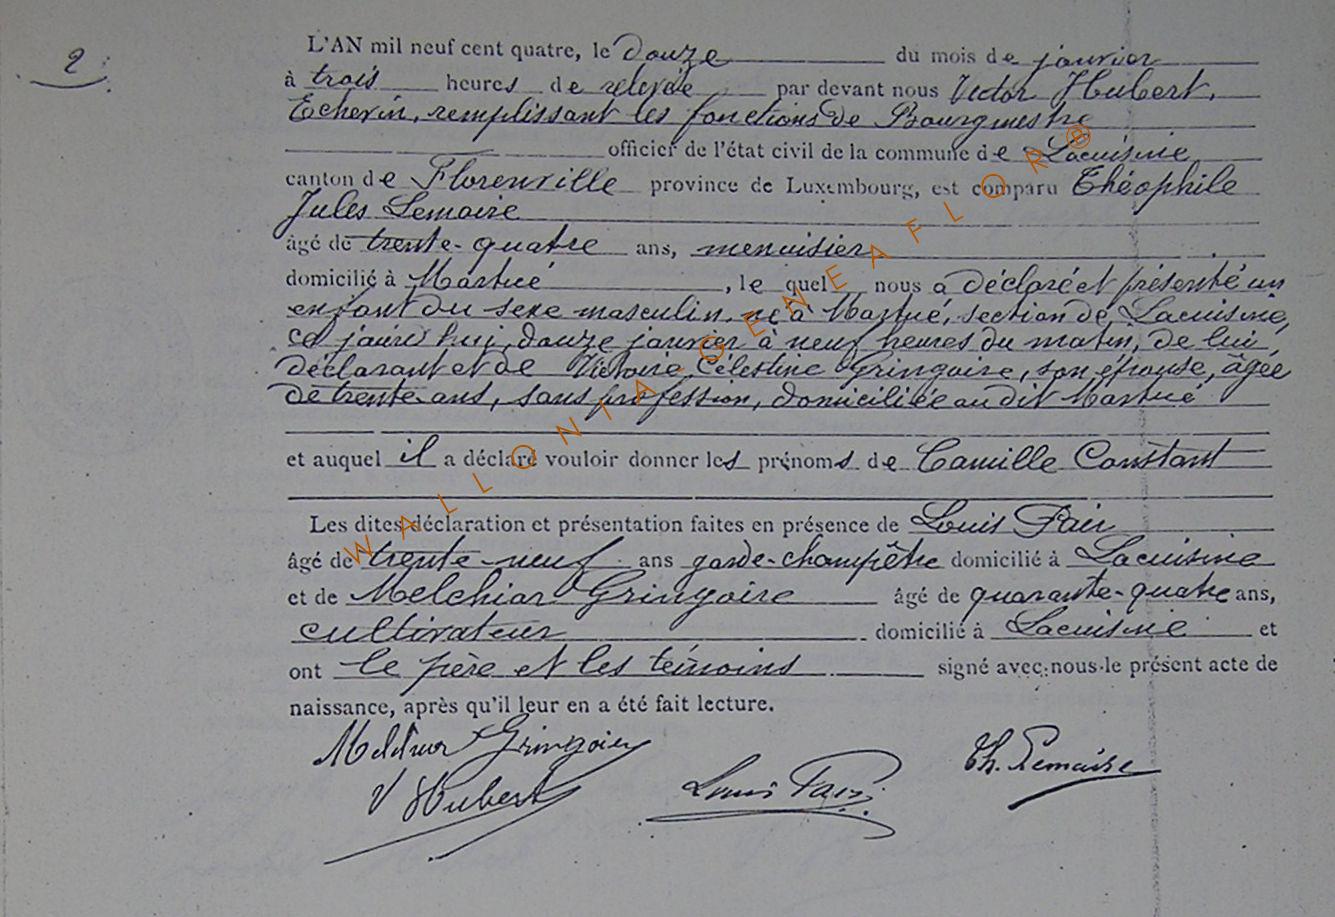 2
L'AN mil neuf cent quatre, le douze du mois de janvier
à trois heures de relevée par devant nous Victor Hubert,
Echevin, remplissant les fonctions de Bourgmestre
officier de l'état civil de la commune de Lacuisine
canton de Florenville province de Luxembourg, est comparu Théophile
Jules Lemaire
âgé de trente-quatre ans, menuisier
domicilié à Martué, le quel nous a déclaré et présenté un
enfant du sexe masculin, né à Martué, section de Lacuisine,
ce jourd'hui, douze janvier à neuf heures du matin, de lui
déclarant et de Victoire Célestine Gringoire, son épouse, âgée
de trente ans, sans profession, domiciliée au dit Martué
et auquel il a déclaré vouloir donner les prénoms de Camille Constant
Les dites déclaration et présentation faites en présence de Louis
âgé de trente-neuf ans garde-champêtre domicilié à Lacuisine
et de Melchior Gringoire âgé de quarante-quatre ans,
cultivateur domicilié à Lacuisine et
ont le père et les témoins signé avec nous le présent acte de
naissance, après qu'il leur en a été fait lecture.
Melchior Gringoire
Th. Lemaire
V Hubert
Louis
WALLONIA-GENEAFLOR®